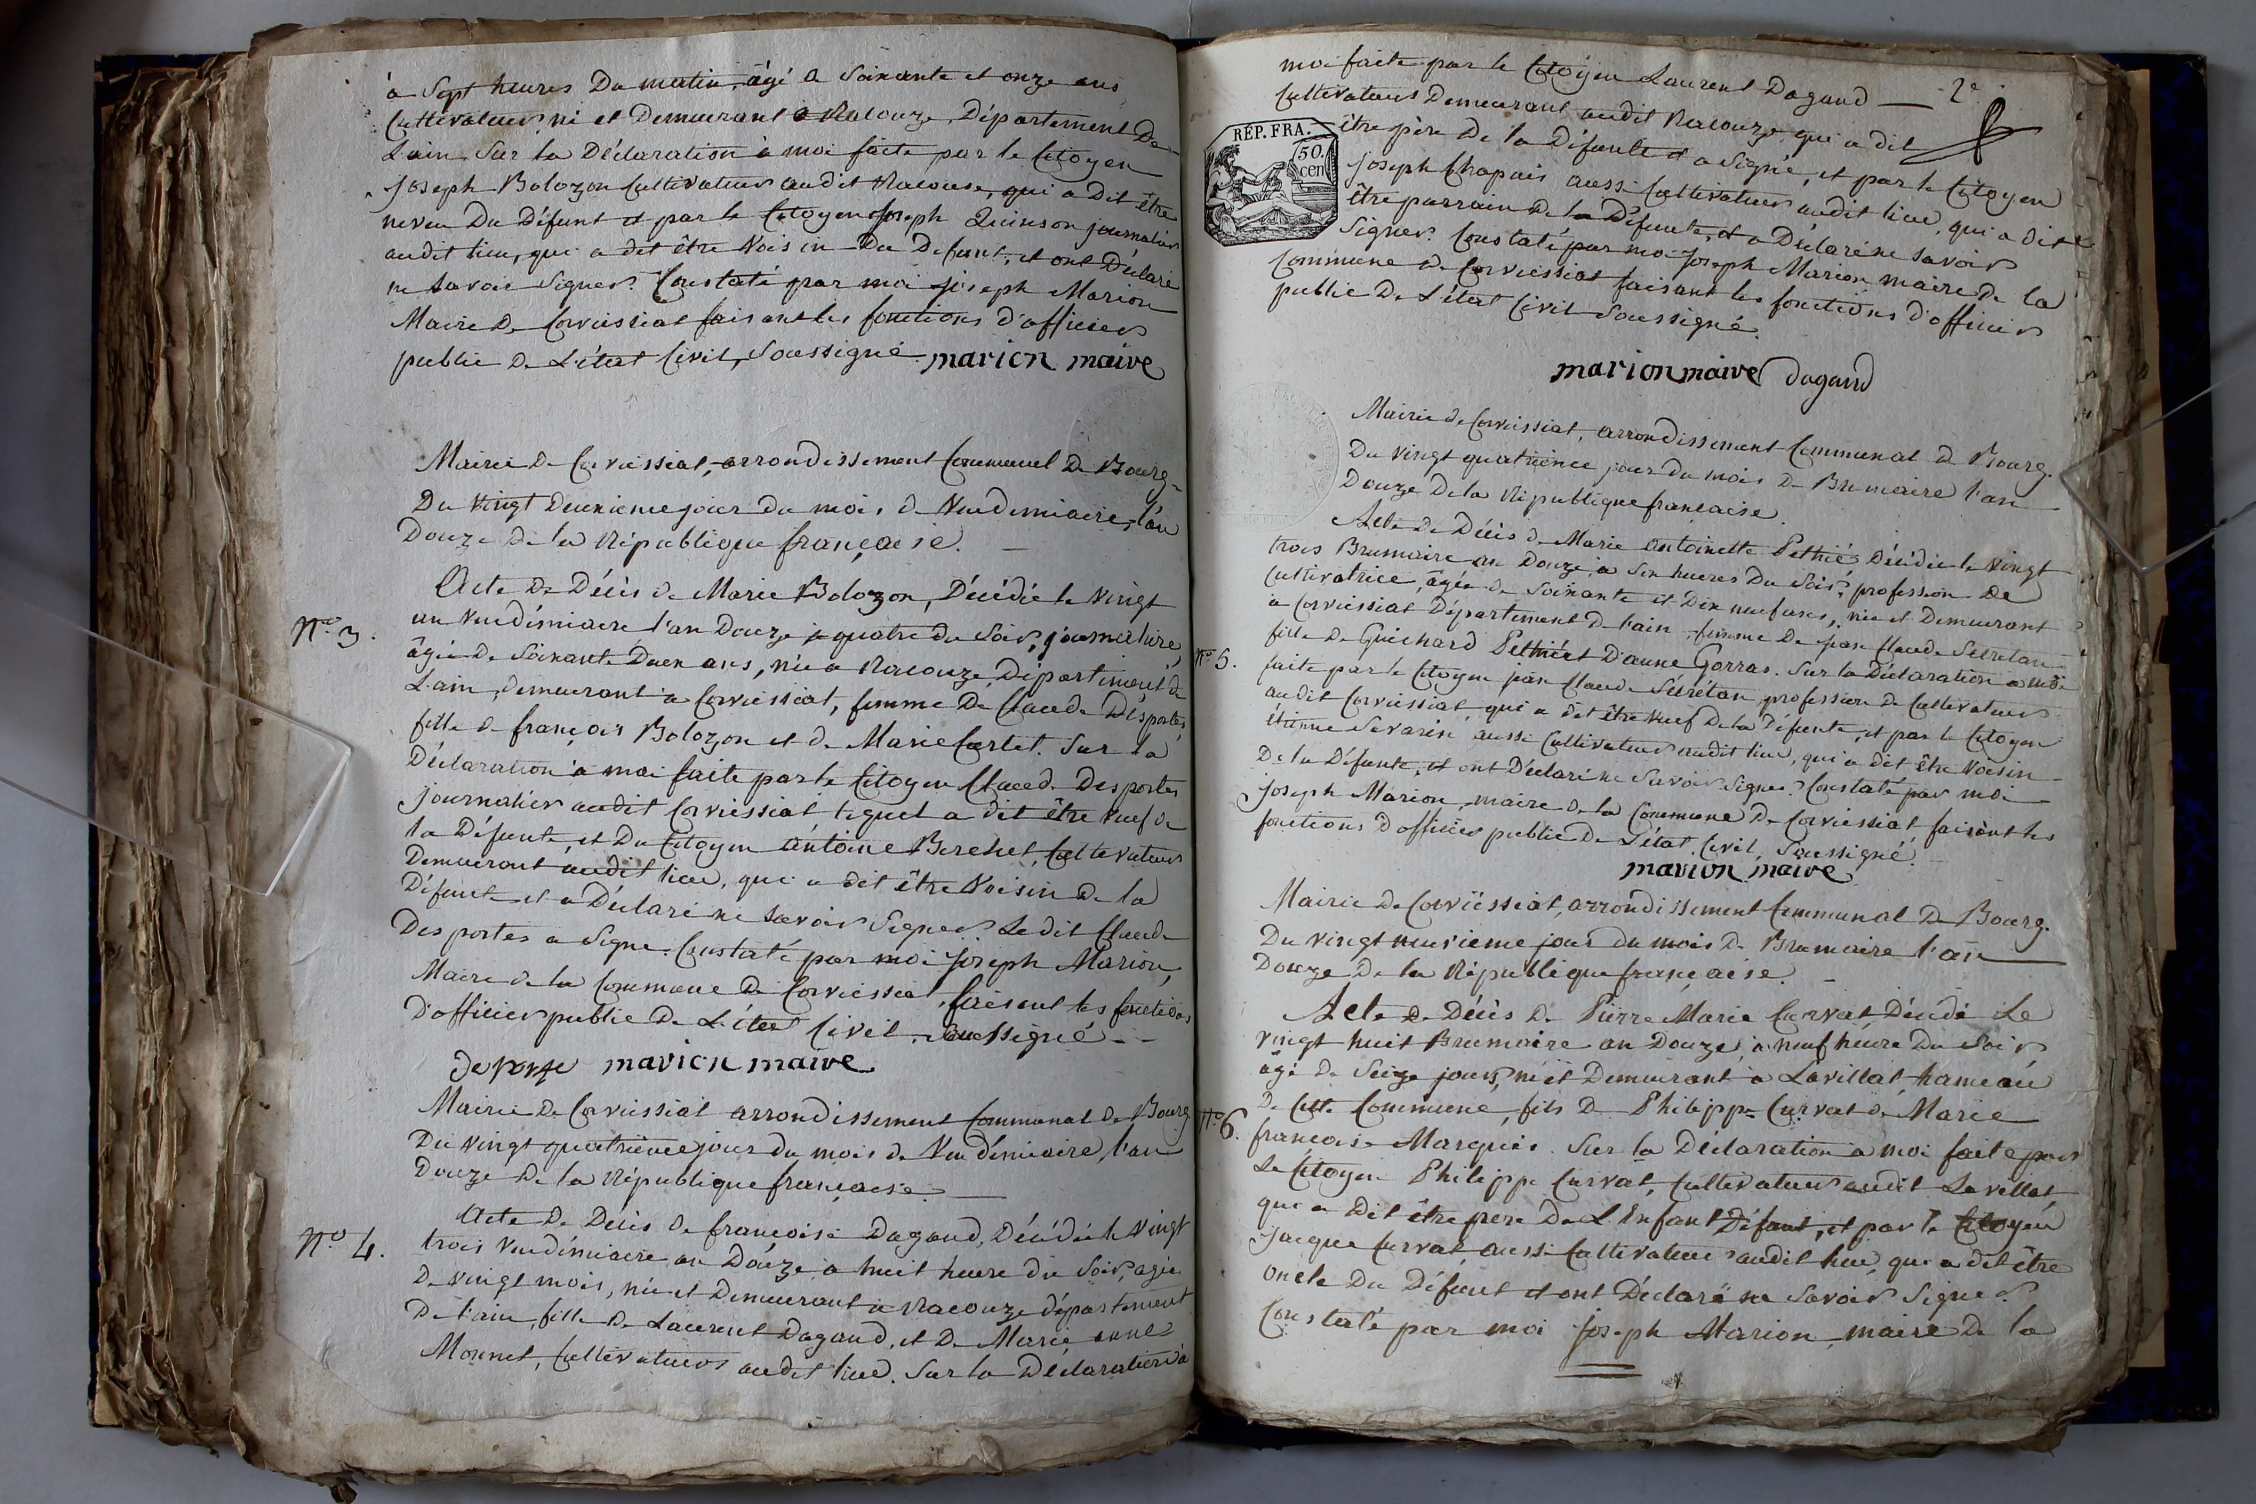 à Sept heures Du matin, âgé a Soixante et onze ans
Cultivateur, né et Demeurant a Racouze, Département De
L'ain, Sur la Déclaration à moi faite par le Citoyen
Joseph Bolozon Cultivateur audit Racouse, qui a Dit être
neveu Du Défunt et par le Citoyen Joseph Quinson journalier
audit lieu, qui a dit être Voisin Du Defunt, et ont Déclaré
ne Savoir Signer. Constaté par moi joseph Marion
Maire De Corvissiat faisant les fonctions d'officier
public De L'état Civil, Soussigné. marion maire
Mairie De Corveissiat, arrondissement Communal De Bourg
Du Vingt Deuxieme jour du mois de Vendemiaire, l'an
Douze de la République française.
Acte De Décès de Marie Bolozon, Décédée le Vingt
N.o 3.
un Vendémiaire l'an Douze a quatre du Soir, journaliere,
âgée De Soixante Deux ans, née a Racouze, Département de
L'ain, demeurant à Corveissiat, femme De Claude Desportes,
fille de françois Bolozon et de Marie Cartet. Sur la
Déclaration à moi faite par le Citoyen Claude Desportes
journalier audit Corveissiat lequel a dit être veuf de
la Défunte, et Du Citoyen antoine Berchet, Cultivateur
Demeurant audit lieu, qui a dit être Voisin De la
Défunte et a Déclaré ne Savoir Signer Ledit Claude
Des portes a Signe. Constaté par moi Joseph Marion,
Maire de la Commune De Corveissiat, faisant les fonctions
D'officier public De L'état Civil, Soussigné
deporte marion maire
Mairie De Corveissiat arrondissement Communal de Bourg
Du vingt quatrieme jour du mois de Vendémiaire, l'an
Douze De la République française.
Acte De Décès De francoise Dagand, Décédée le vingt
N.o 4.
trois Vendémiaire an Douze, a huit heure du Soir, agée
De vingt mois, née et Demeurant a Racouze département
De l'ain, fille De Laurent Dagand, et De Marie anne
Monnet, Cultivateurs audit lieu. Sur la Déclaration à
moi faite par le Citoyen Laurent Dagand
2e
Cultivateur Demeurant audit Racouze qui a dit
RÉP. FRA.
50.
cen
être père De la Défunte et a Signé, et par le Citoyen
joseph Chapuis aussi Cultivateur audit lieu, qui a dit
être parrain De la Défunte, et a Déclaré ne Savoir
Signer. Constaté par moi Joseph Marion maire De la
Commune De Corveissiat faisant les fonctions d'officier
public De L'état Civil Soussigné.
marion maire dagand
Mairie de Corveissiat, arrondissement Communal de Bourg.
Du vingt quatrieme jour du mois De Brumaire l'an
Douze De la République française.
Acte De Décès de Marie antoinette Pethié, Décédée le vingt
trois Brumaire an Douze, a Six heures Du Soir, profession De
Cultivatrice, âgée de Soixante et Dix neuf ans, née et Demeurant
à Corveissiat Département de l'ain femme De jean Claude Secretan
N.o 5.
fille De Guichard Pethié et D'anne Gorras. Sur la Déclaration a moi
faite par le Citoyen jean Claude Sécrétan profession de Cultivateur
audit Corveissiat, qui a dit être Veuf De la Défunte, et par le Citoyen
étienne Savarin aussi Cultivateur audit lieu, qui a dit être Voisin
De la Défunte, et ont Déclaré ne Savoir Signer. Constaté par moi
joseph Marion, maire de la Commune De Corveissiat, faisant les
fonctions d'officier public De L'état Civil Soussigné.
marion maire
Mairie De Corveissiat, arrondissement Communal De Bourg.
Du vingt neuvieme jour du mois De Brumaire l'an
Douze De la République française.
Acte De Décès De Pierre Marie Curvat Décédé Le
vingt huit Brumaire an Douze, a neuf heure Du Soir
âgé de Seize jours, né et Demeurant a Lavillat hameau
De Cette Commune, fils De Philippe Curvat de Marie
N.o 6.
francoise Marquis. Sur la Déclaration a moi faite par
Le Citoyen Philippe Curvat, Cultivateur audit Lavillat
qui a dit être pere De L'Enfant Défunt, et par le Citoyen
Jacque Curvat aussi Cultivateur audit lieu, qui a dit être
oncle Du Défunt et ont Déclaré ne Savoir Signer.
Constaté par moi Joseph Marion maire De la